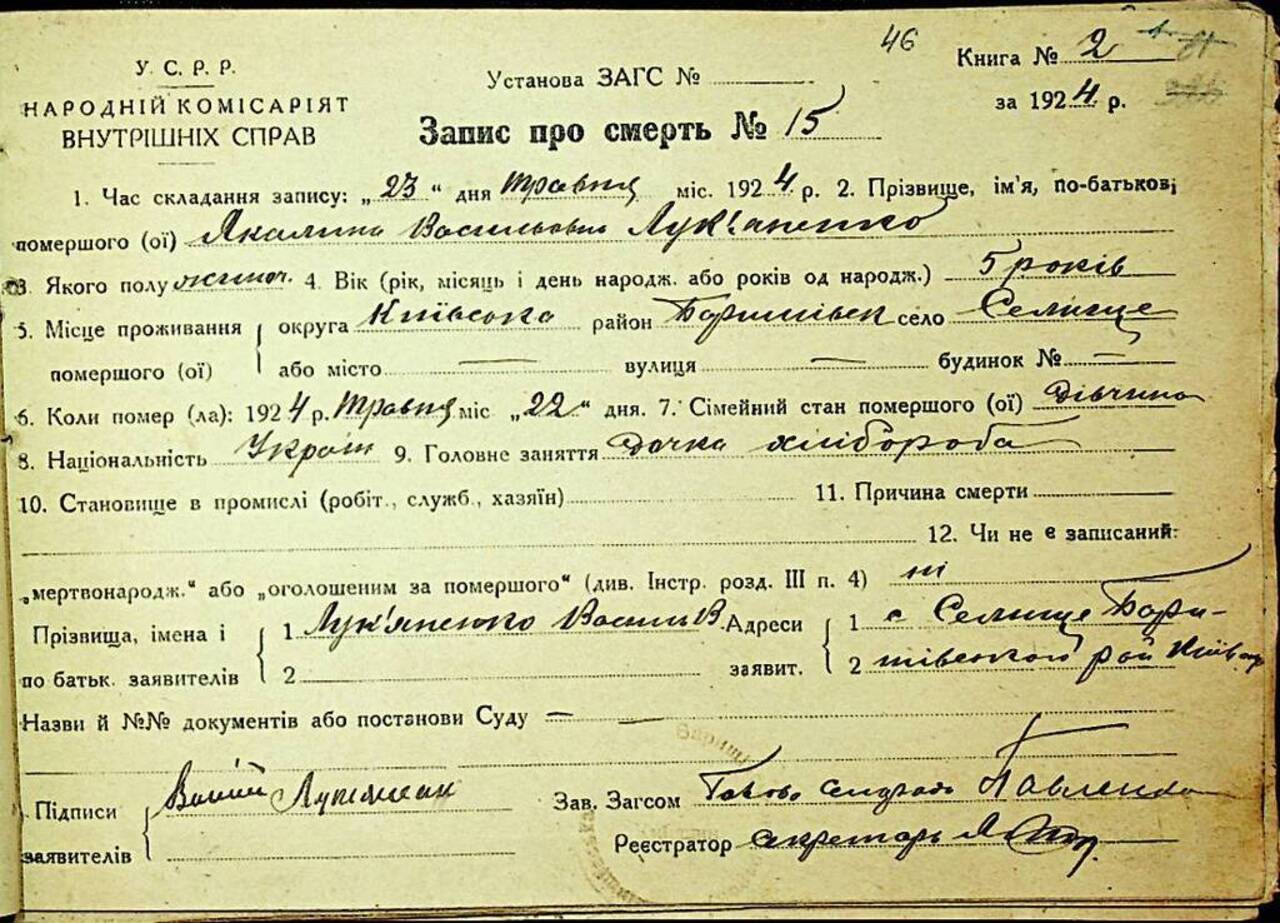 46
Книга № 2
У. С. Р. Р.
Установа ЗАГС №
за 1924 р.
НАРОДНІЙ КОМІСАРІЯТ
ВНУТРІШНІХ СПРАВ
Запис про смерть № 15
1. Час складання запису: „23“ дня Травня міс. 1924 р. 2. Прізвище, ім'я, по-батькові
помершого (ої) Якилина Васильовна Лук'яненко
3. Якого полу жіноч. 4. Вік (рік, місяць і день народж. або років од народж.) 5 років
5. Місце проживання округа Київська район Баришівськ село Селище
помершого (ої) або місто — вулиця — будинок № —
6. Коли помер (ла): 1924 р. Травня міс „22“ дня. 7. Сімейний стан помершого (ої) Дівчина
8. Національність Україн 9. Головне заняття Дочка хлібороба
10. Становище в промислі (робіт., служб., хазяїн) 11. Причина смерти
12. Чи не є записаний:
„мертвонародж.“ або „оголошеним за помершого“ (див. Інстр. розд. III п. 4) ні
Прізвища, імена і 1 Лук'яненко Василь В. Адреси 1 с Селище Бари-
по батьк. заявителів 2 заявит. 2 шівського рай Київ окр
Назви й №№ документів або постанови Суду — —
Підписи
Зав. Загсом Голова сельради Павленко
заявителів
Реєстратор секретарь